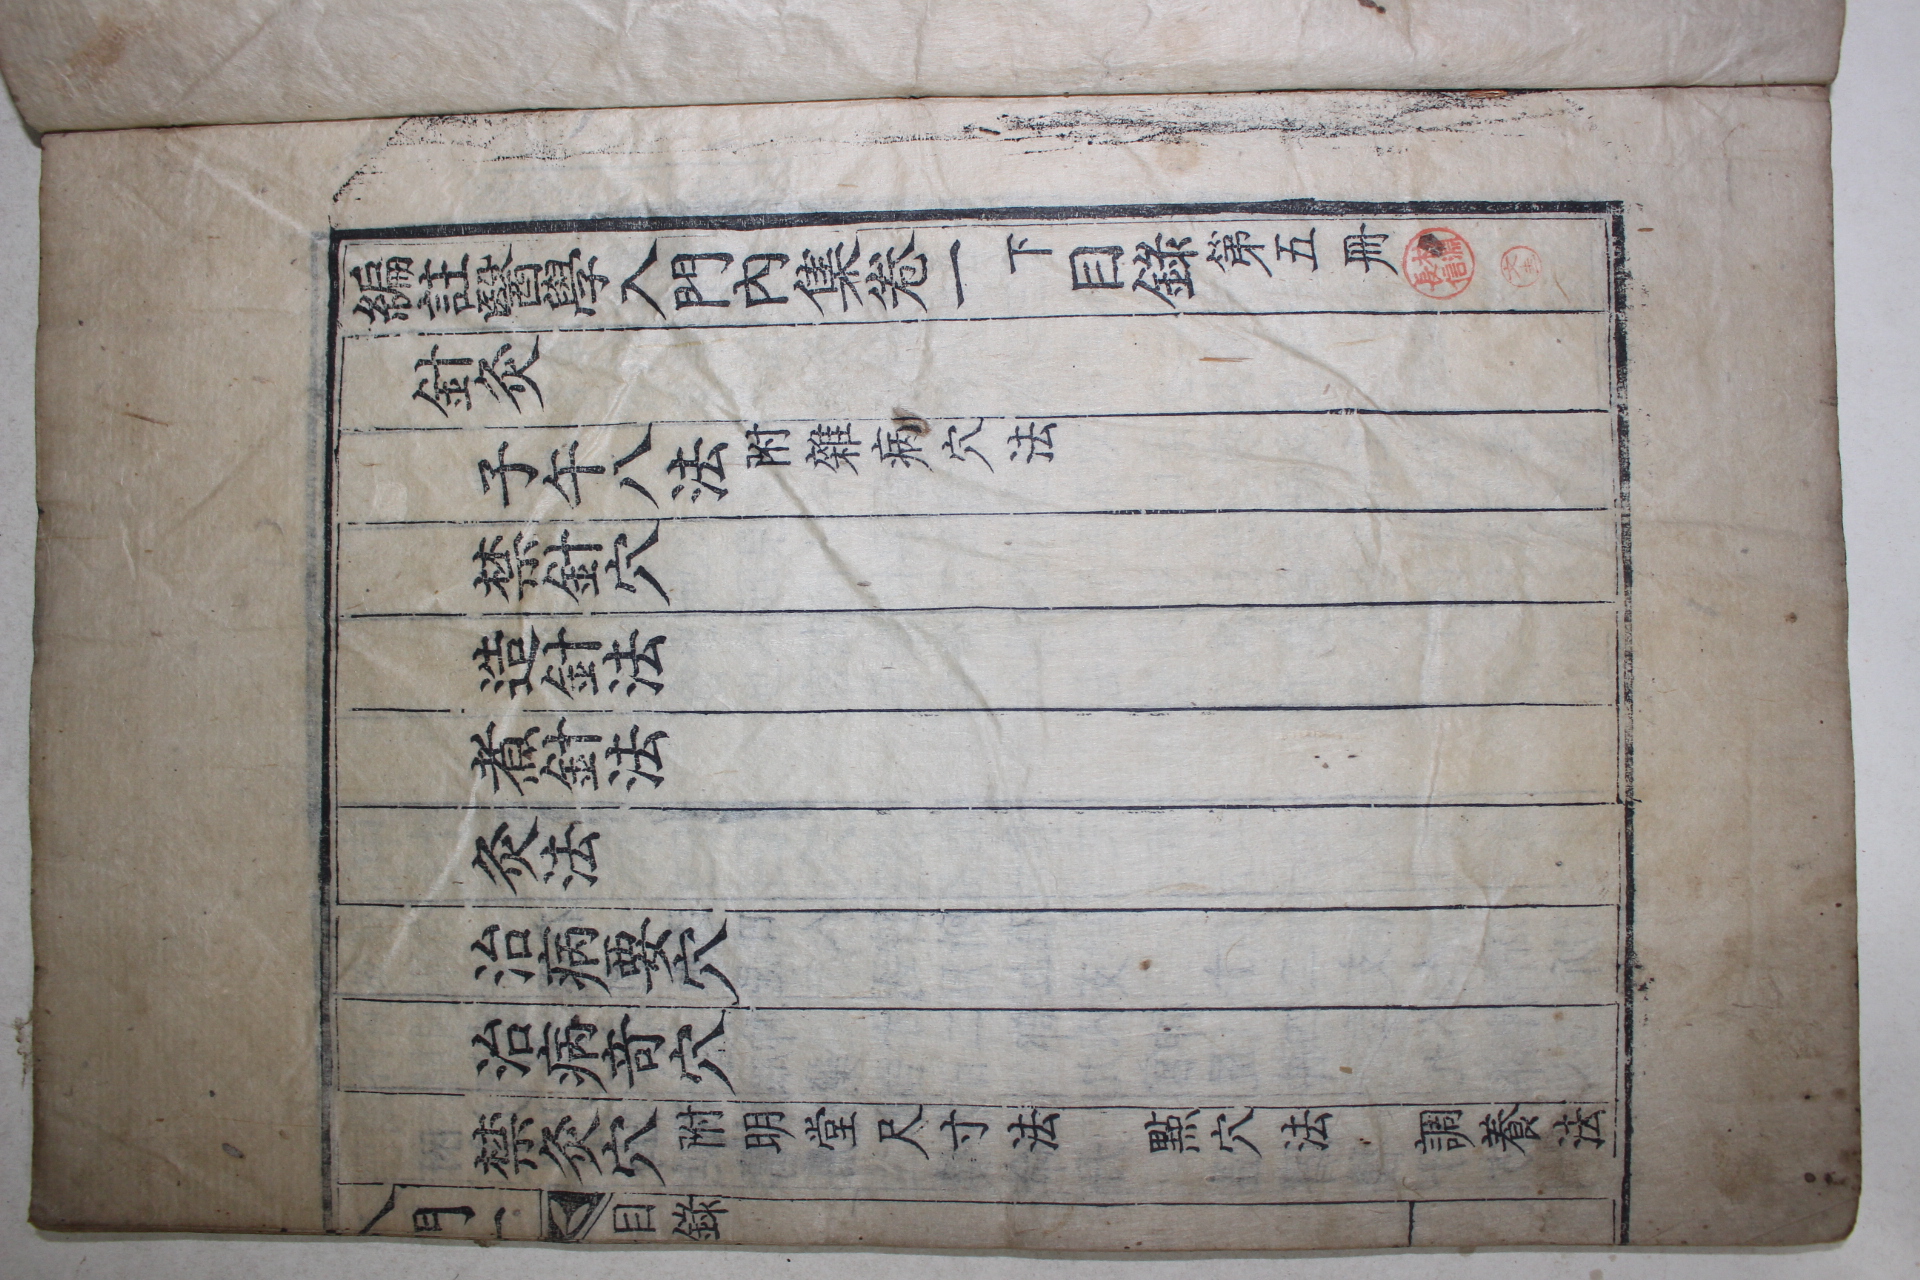 編註醫學入門內集卷一 下 目錄 第五冊
針灸
子午八法 附雜病穴法
禁針穴
造針法
煮針法
灸法
治病要穴
治病奇穴
禁灸穴 附明堂尺寸法 點穴法 調養法
門一 目錄